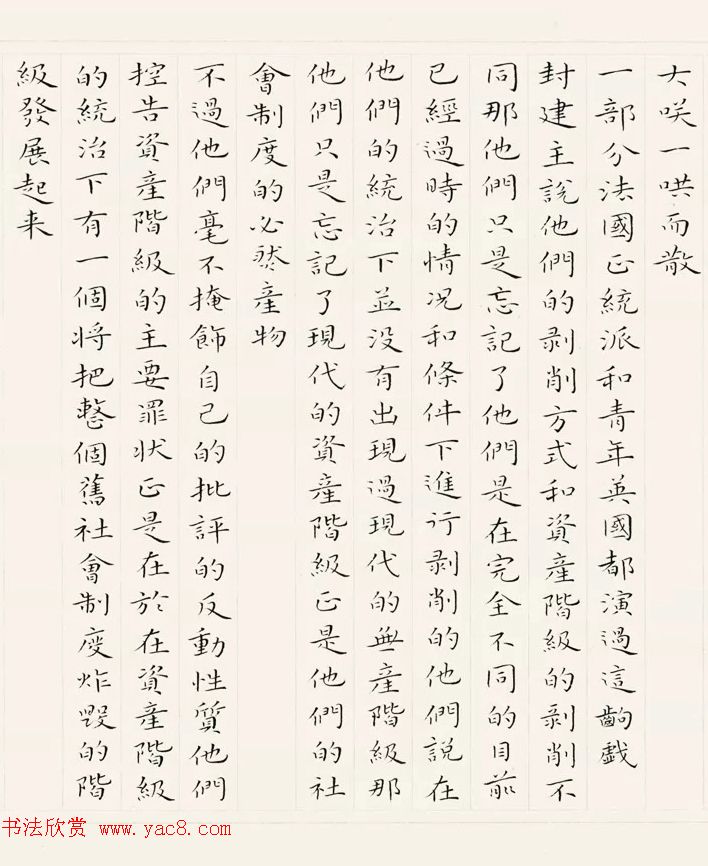 大咲一哄而散
一部分法國正統派和青年英國都演過這齣戲
封建主說他們的剥削方式和資產階級的剥削不
同那他們只是忘記了他們是在完全不同的目前
已經過時的情况和條件下進行剥削的他們説在
他們的統治下並没有出現過現代的無產階級那
他們只是忘記了現代的資產階級正是他們的社
會制度的必然產物
不過他們毫不掩飾自己的批評的反動性質他們
控告資產階級的主要罪状正是在於在資產階級
的統治下有一個将把整個舊社會制度炸毀的階
級發展起来
书法欣赏 www.yac8.com